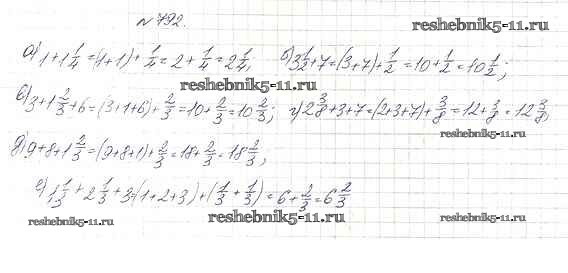 № 792.
reshebnik5-11.ru
а) 1+1 1/4 = (1+1)+1/4 = 2+1/4 = 2 1/4; б) 3 1/2+7 = (3+7)+1/2 = 10+1/2 = 10 1/2;
reshebnik5-11.ru
в) 3+1 2/3+6 = (3+1+6)+2/3 = 10+2/3 = 10 2/3; г) 2 3/8+3+7 = (2+3+7)+3/8 = 12+3/8 = 12 3/8,
reshebnik5-11.ru
д) 9+8+1 2/3 = (9+8+1)+2/3 = 18+2/3 = 18 2/3;
е) 1 1/3+2 1/3+3 = (1+2+3)+(1/3+1/3) = 6+2/3 = 6 2/3
reshebnik5-11.ru reshebnik5-11.ru reshebnik5-11.ru